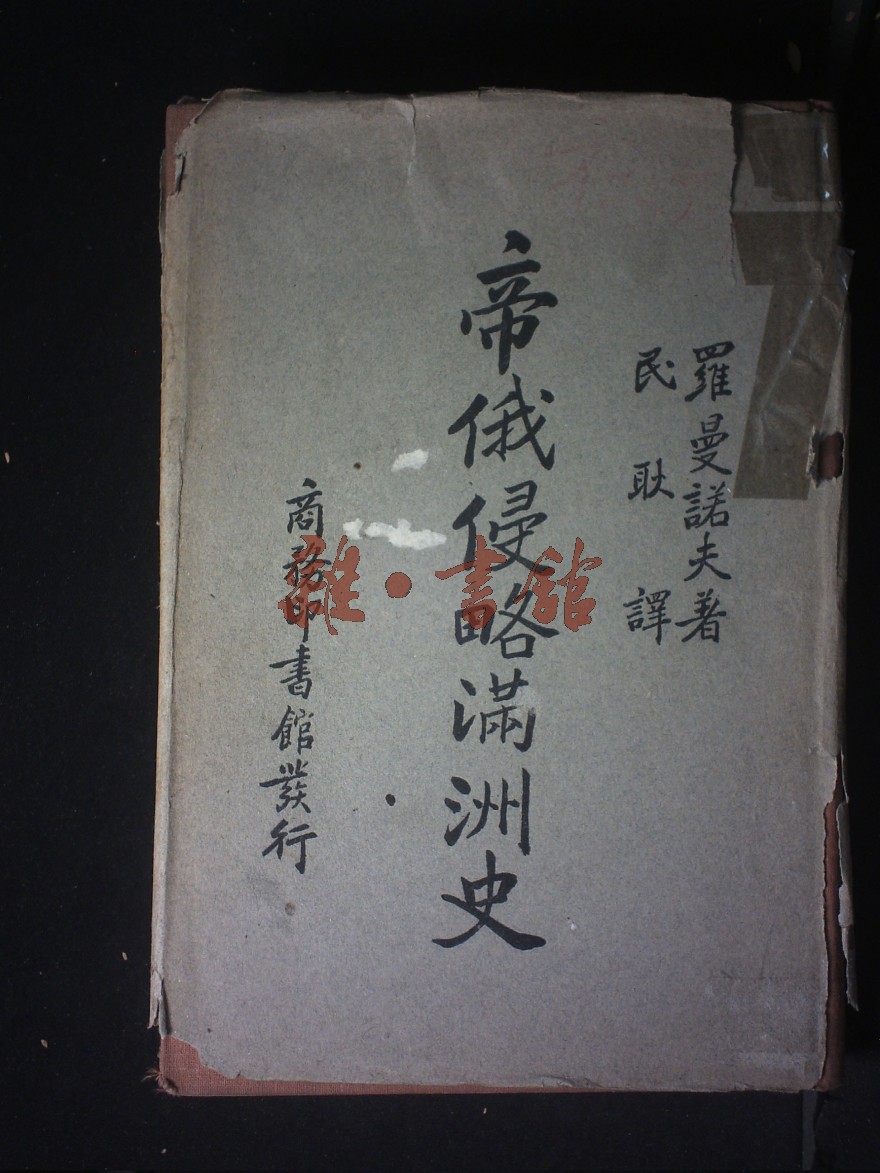 羅曼諾夫著
民耿譯
帝俄侵略滿洲史
商務印書館發行
雜·書館